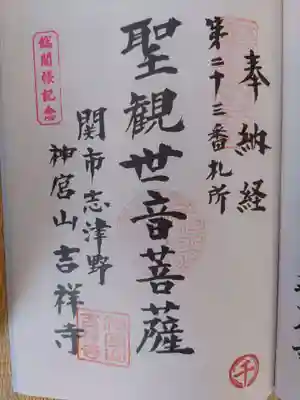 奉納経
第二十三番札所
聖観世音菩薩
関市志津野
神宮山吉祥寺
総開帳記念